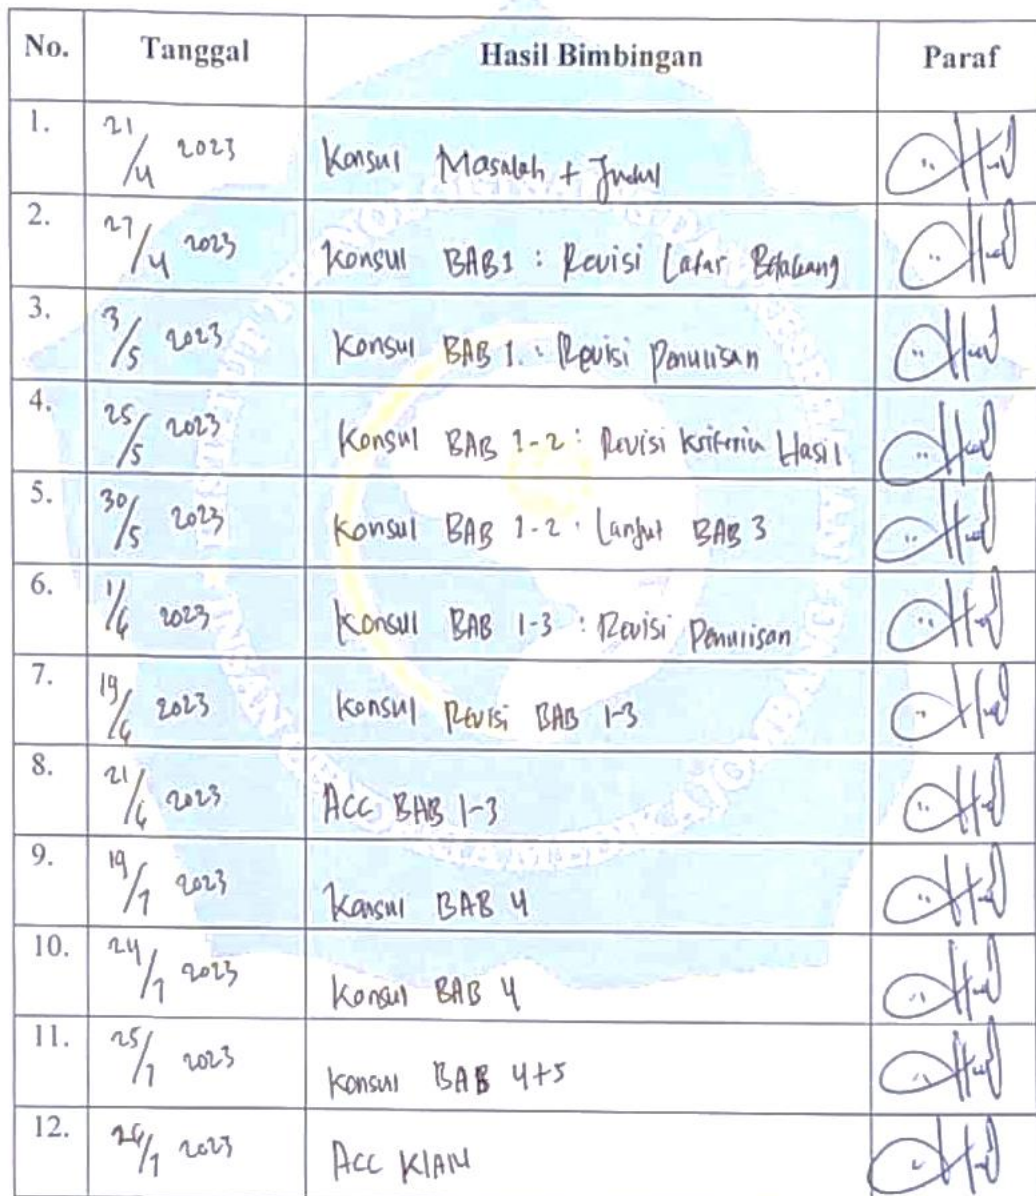 No. Tanggal Hasil Bimbingan Paraf
1. 21/4 2023 Konsul Masalah + Judul
2. 27/4 2023 Konsul BAB 1 : Revisi Latar Belakang
3. 3/5 2023 Konsul BAB 1 : Revisi Penulisan
4. 25/5 2023 Konsul BAB 1-2 : Revisi Kriteria Hasil
5. 30/5 2023 Konsul BAB 1-2 : Lanjut BAB 3
6. 1/6 2023 Konsul BAB 1-3 : Revisi Penulisan
7. 19/6 2023 Konsul Revisi BAB 1-3
8. 21/6 2023 ACC BAB 1-3
9. 19/7 2023 Konsul BAB 4
10. 24/7 2023 Konsul BAB 4
11. 25/7 2023 Konsul BAB 4+5
12. 26/7 2023 ACC KIAN